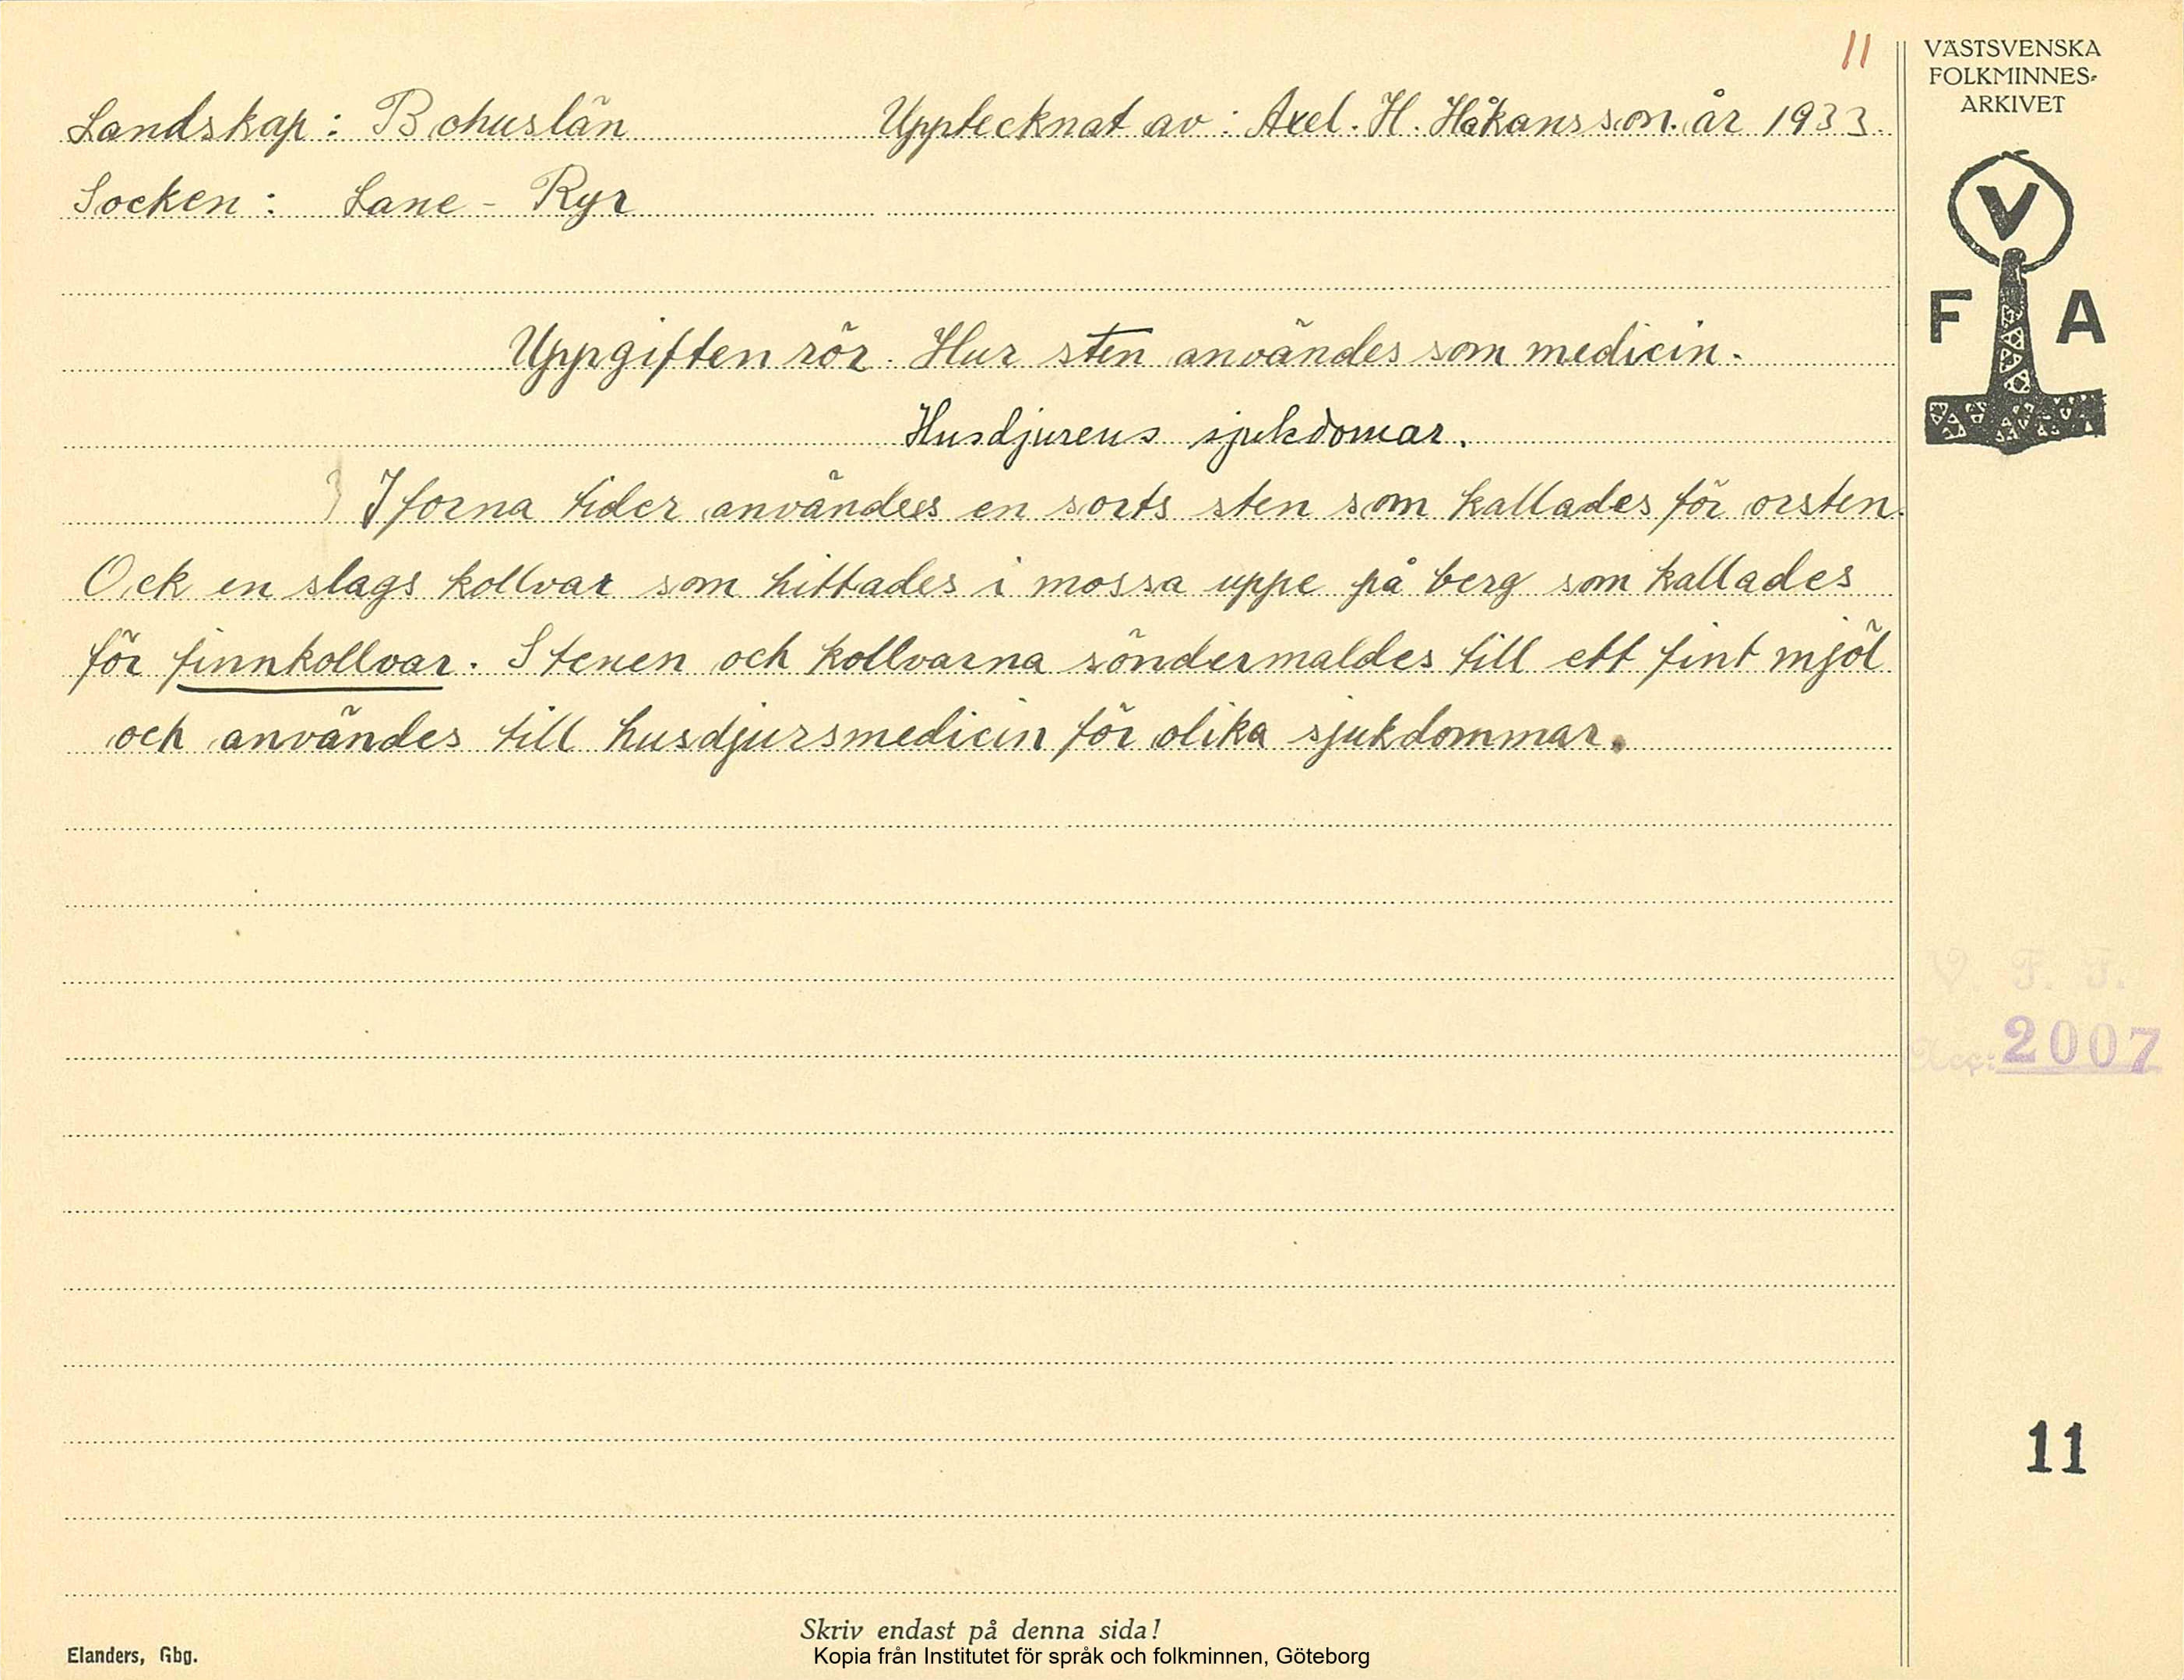 11
VÄSTSVENSKA
FOLKMINNES-
ARKIVET
V
F A
Landskap: Bohuslän Upptecknat av: Axel. H. Håkansson. år 1933.
Socken: Lane - Ryr
Uppgiften rör. Hur sten användes som medicin.
Husdjurens sjukdomar.
I forna tider användees en sorts sten som kallades för orsten.
Ock en slags kollvar som hittades i mossa uppe på berg som kallades
för finnkollvar. Stenen och kollvarna söndermaldes till ett fint mjöl
och användes till husdjursmedicin för olika sjukdommar.
V. F. F.
Acc: 2007
11
Skriv endast på denna sida!
Elanders, Gbg.
Kopia från Institutet för språk och folkminnen, Göteborg